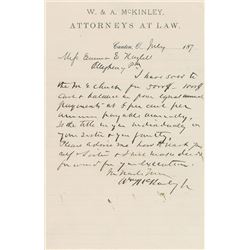 W. & A. McKINLEY,
ATTORNEYS AT LAW.
Canton, O. July 187
Miss Emma E.
Allegheny Pa
I have sold to
the M E Church for $
cash & balance in four equal annual
payments at 6 per cent per
annum payable annually.
Is the title in you individually or in
your Sister & you jointly.
Please advise me how
& Sister & I will make deed
for execution
Wm McKinley Jr